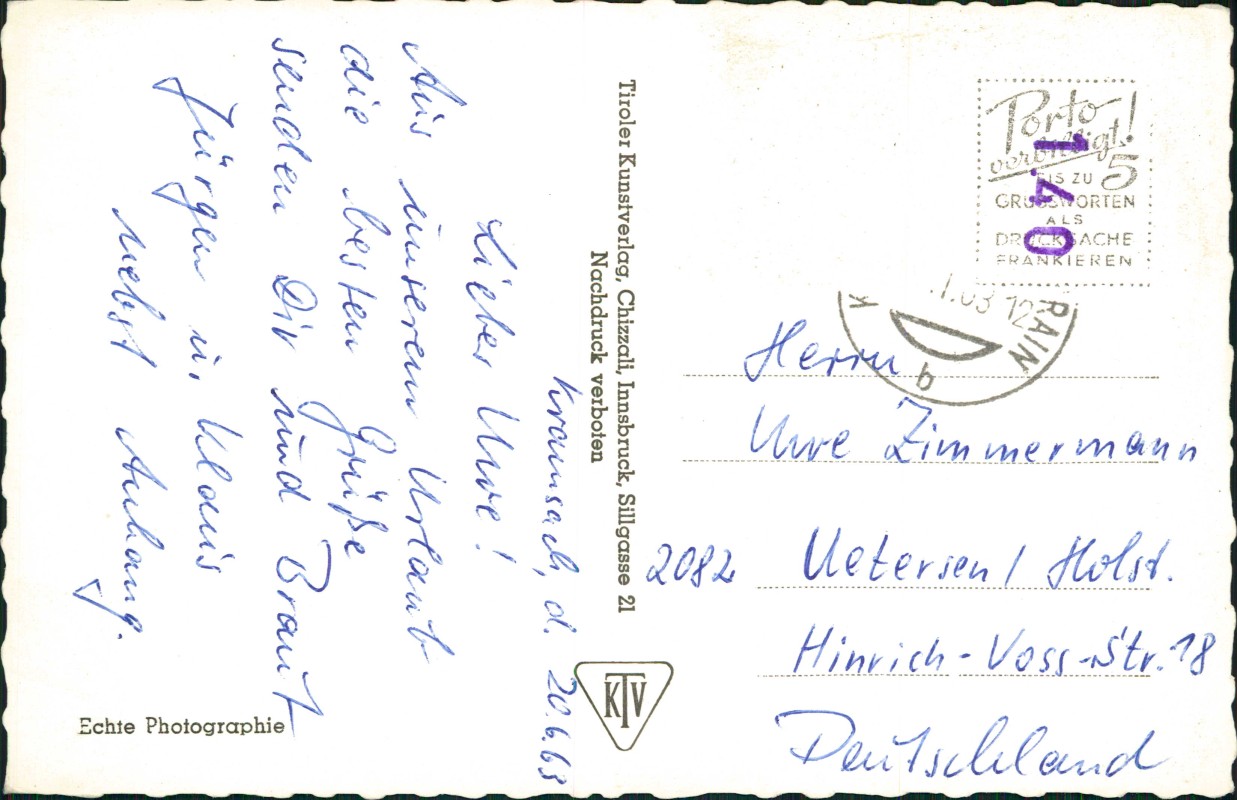 Kramsach, d. 20.6.63
Lieber Uwe!
Aus unserem Urlaub
die besten Grüße
senden Dir und Braut
Jürgen u. Klaus
nebst Anhang.
Echte Photographie
Tiroler Kunstverlag, Chizzali, Innsbruck, Sillgasse 21
Nachdruck verboten
KTV
Porto
verbilligt!
BIS ZU 5
GRUSSWORTEN
ALS
DRUCKSACHE
FRANKIEREN
1.40
RAIN
12
b
K
Herrn
Uwe Zimmermann
2082 Uetersen / Holst.
Hinrich-Voss-Str. 18
Deutschland